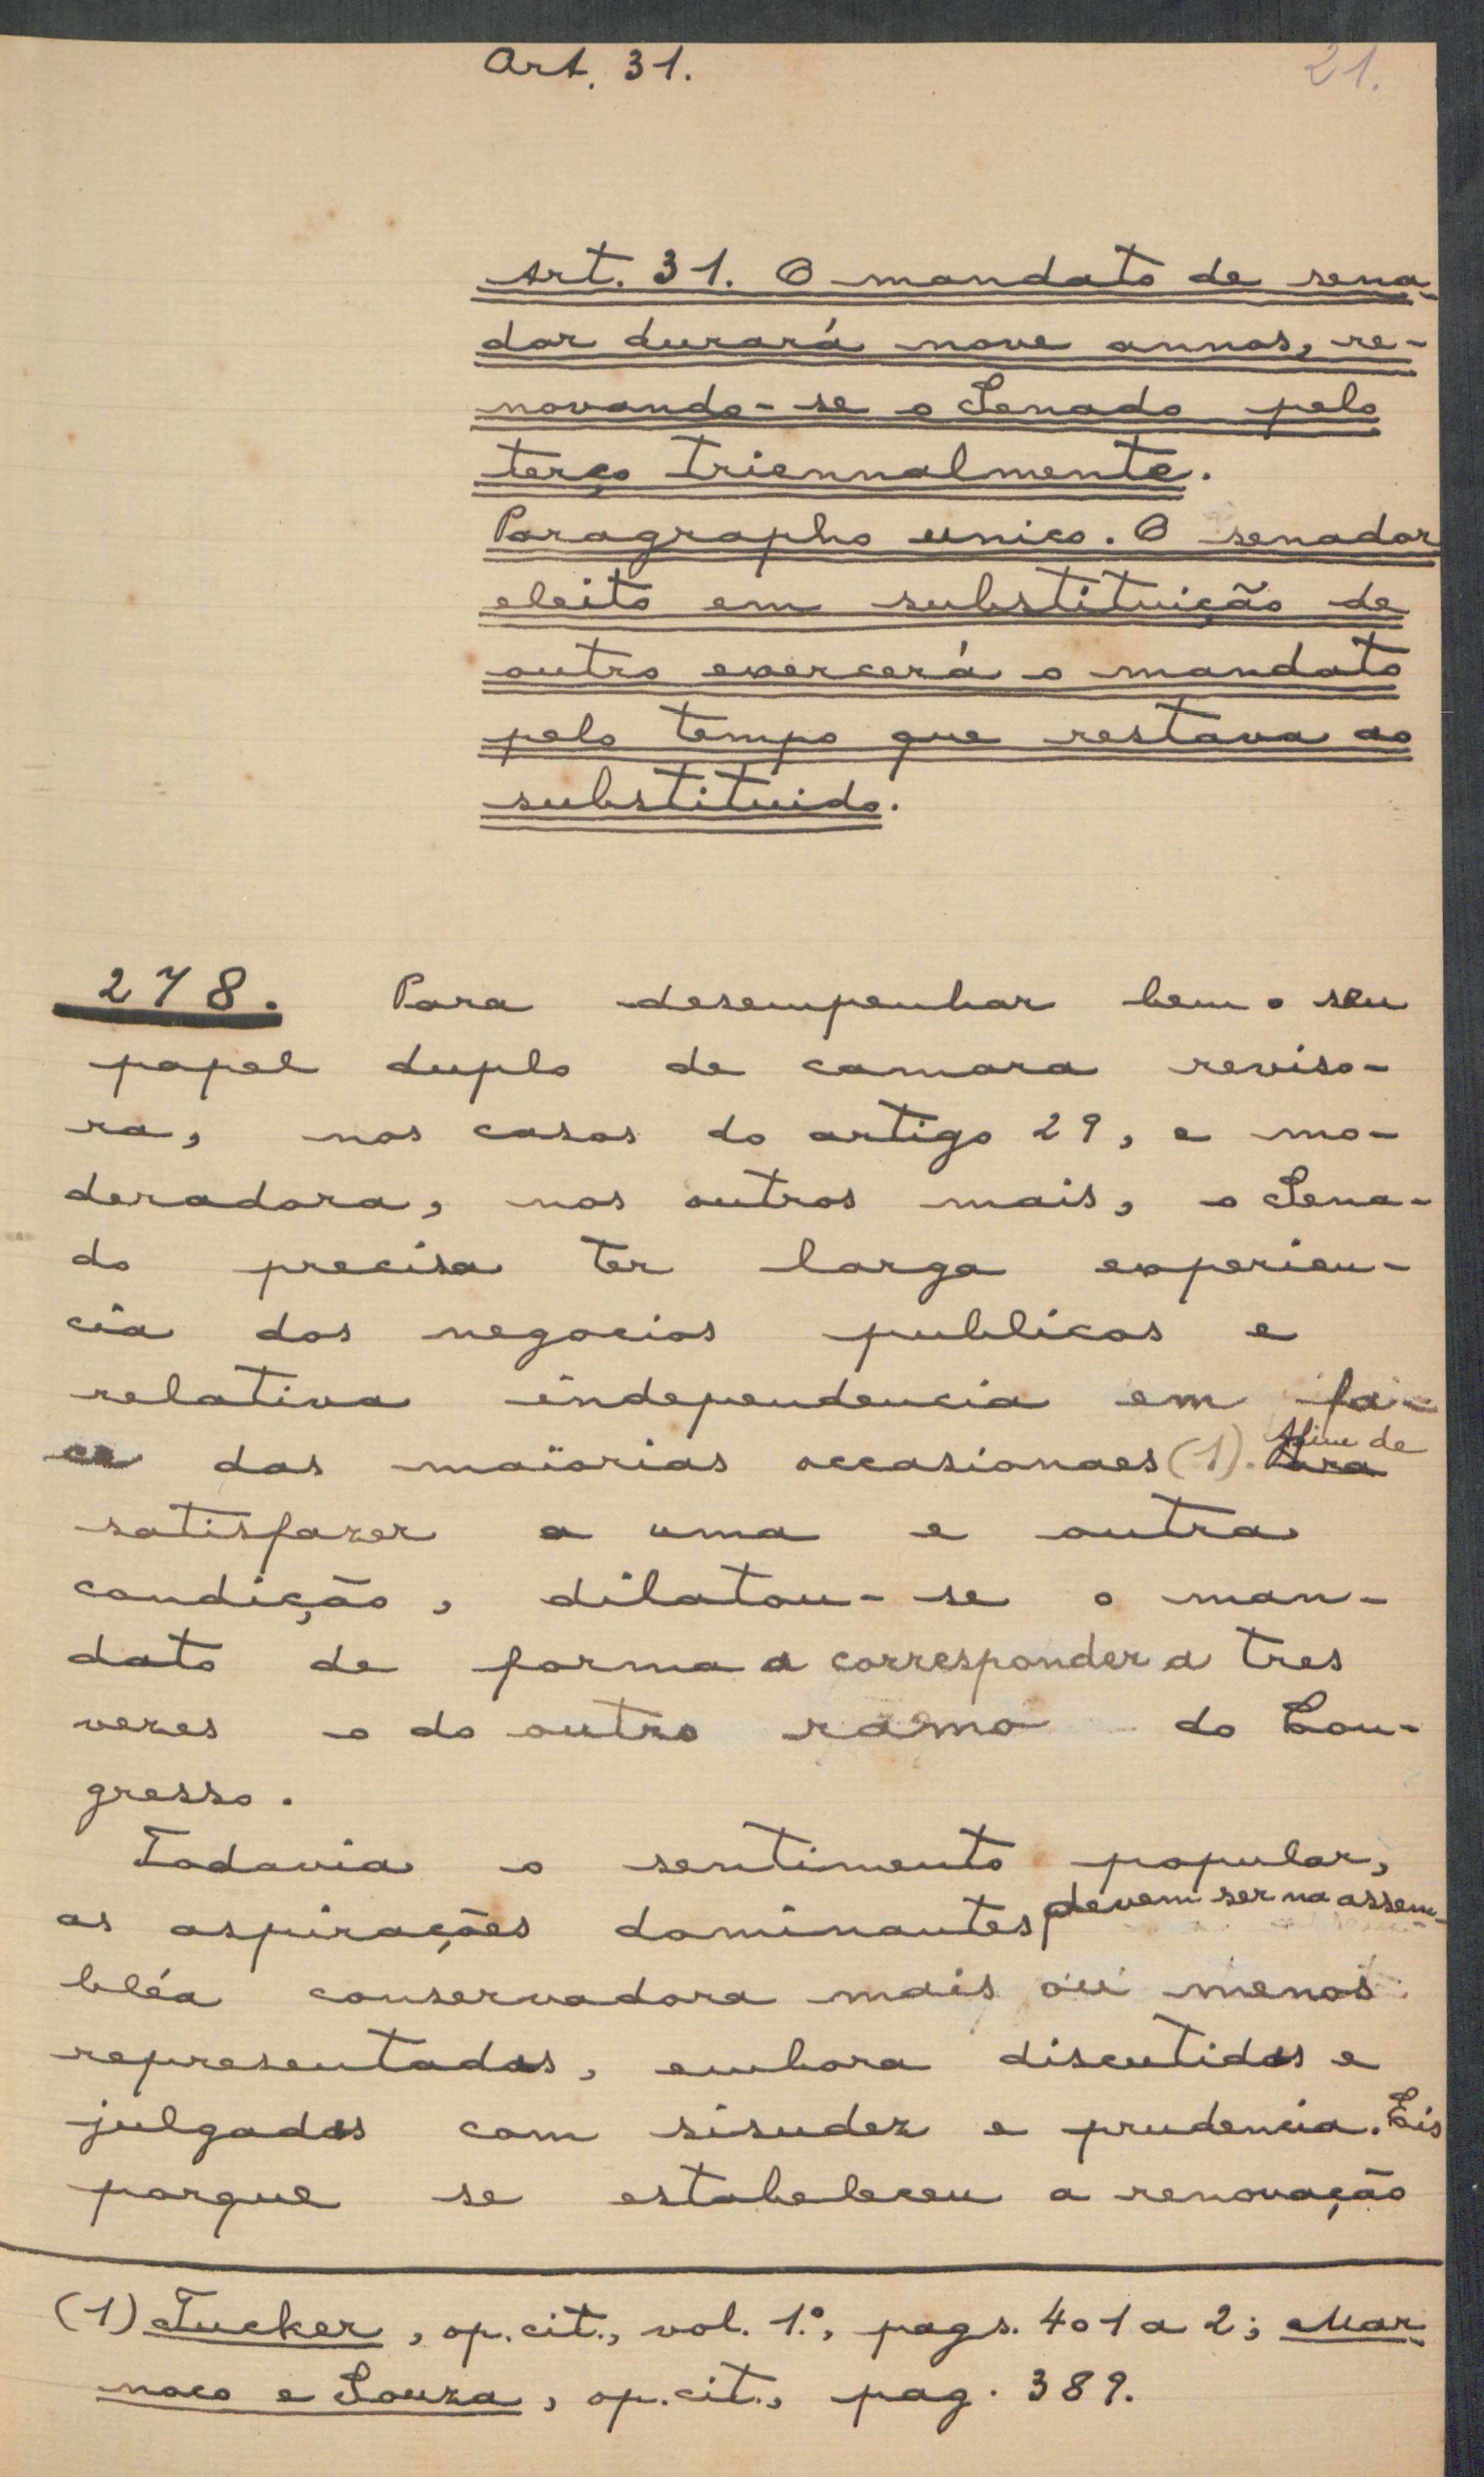 Art. 31.
21.
Art. 31. O mandato de sena-
dor durará nove annos, re-
novando-se o Senado pelo
terço triennalmente.
Paragrapho unico. O senador
eleito em substituição de
outro exercerá o mandato
pelo tempo que restava ao
substituido.
278. Para desempenhar bem o seu
papel duplo de camara reviso-
ra, nos casos do artigo 29, e mo-
deradora, nos outros mais, o Sena-
do precisa ter larga experien-
cia dos negocios publicos e
relativa independencia em fa-
ce das maiorias occasionaes (1). Afim de
satisfazer a uma e outra
condição, dilatou-se o man-
dato de forma a corresponder a tres
vezes o do outro ramo do Con-
gresso.
Todavia o sentimento popular,
as aspirações dominantes devem ser na assem-
bléa conservadora mais ou menos
representados, embora discutidos e
julgados com sisudez e prudencia. Eis
porque se estabeleceu a renovação
(1) Tucker, op. cit., vol. 1.º, pags. 401 a 2; Mar-
noco e Souza, op. cit., pag. 389.